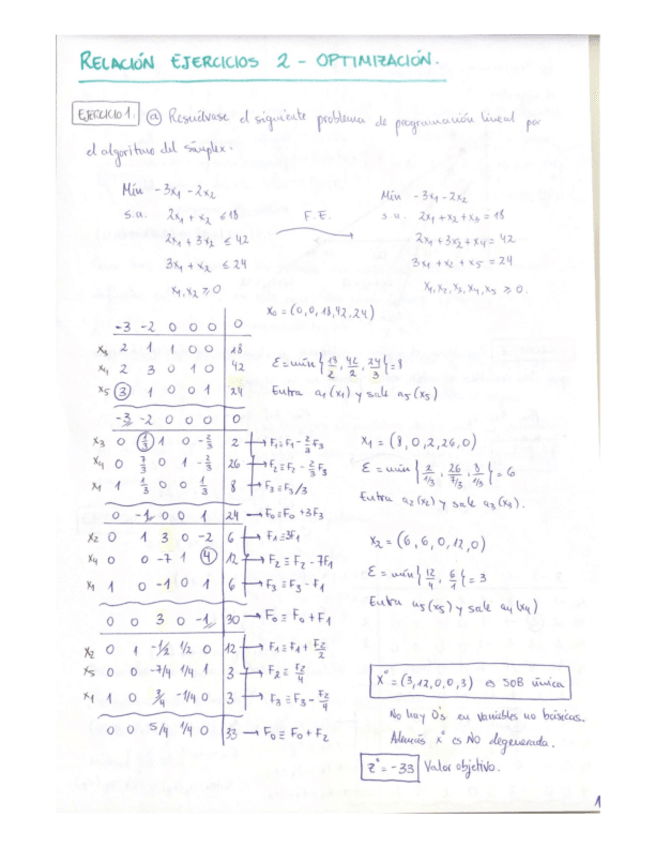 RELACIÓN EJERCICIOS 2 - OPTIMIZACIÓN.
EJERCICIO 1. a) Resuélvase el siguiente problema de programación lineal por
el algoritmo del simplex.
Mín -3x₁ - 2x₂
s.a. 2x₁ + x₂ ≤ 18
2x₁ + 3x₂ ≤ 42
3x₁ + x₂ ≤ 24
x₁, x₂ ≥ 0
F.E.
Mín -3x₁ - 2x₂
s.a. 2x₁ + x₂ + x₃ = 18
2x₁ + 3x₂ + x₄ = 42
3x₁ + x₂ + x₅ = 24
x₁, x₂, x₃, x₄, x₅ ≥ 0.
-3 -2 0 0 0 | 0
x₃ 2 1 1 0 0 | 18
x₄ 2 3 0 1 0 | 42
x₅ 3 1 0 0 1 | 24
-3 -2 0 0 0 | 0
x₀ = (0,0,18,42,24)
ε = mín {18/2, 42/2, 24/3} = 8
Entra a₁(x₁) y sale a₅(x₅)
x₃ 0 1/3 1 0 -2/3 | 2 → F₁≡F₁-2/3F₃
x₄ 0 7/3 0 1 -2/3 | 26 → F₂≡F₂-2/3F₃
x₁ 1 1/3 0 0 1/3 | 8 → F₃≡F₃/3
0 -1 0 0 1 | 24 → F₀≡F₀+3F₃
x₁ = (8,0,2,26,0)
ε = mín {2/1/3, 26/7/3, 8/1/3} = 6
Entra a₂(x₂) y sale a₃(x₃).
x₂ 0 1 3 0 -2 | 6 → F₁≡3F₁
x₄ 0 0 -7 1 4 | 12 → F₂≡F₂-7F₁
x₁ 1 0 -1 0 1 | 6 → F₃≡F₃-F₁
0 0 3 0 -1 | 30 → F₀≡F₀+F₁
x₂ = (6,6,0,12,0)
ε = mín {12/4, 6/1} = 3
Entra a₅(x₅) y sale a₄(x₄)
x₂ 0 1 -1/2 1/2 0 | 12 → F₁≡F₁+F₂/2
x₅ 0 0 -7/4 1/4 1 | 3 → F₂≡F₂/4
x₁ 1 0 3/4 -1/4 0 | 3 → F₃≡F₃-F₂/4
0 0 5/4 1/4 0 | 33 → F₀≡F₀+F₂
x* = (3,12,0,0,3) es SOB única
No hay 0's en variables no básicas.
Además x* es NO degenerada.
z* = -33 Valor objetivo.
1